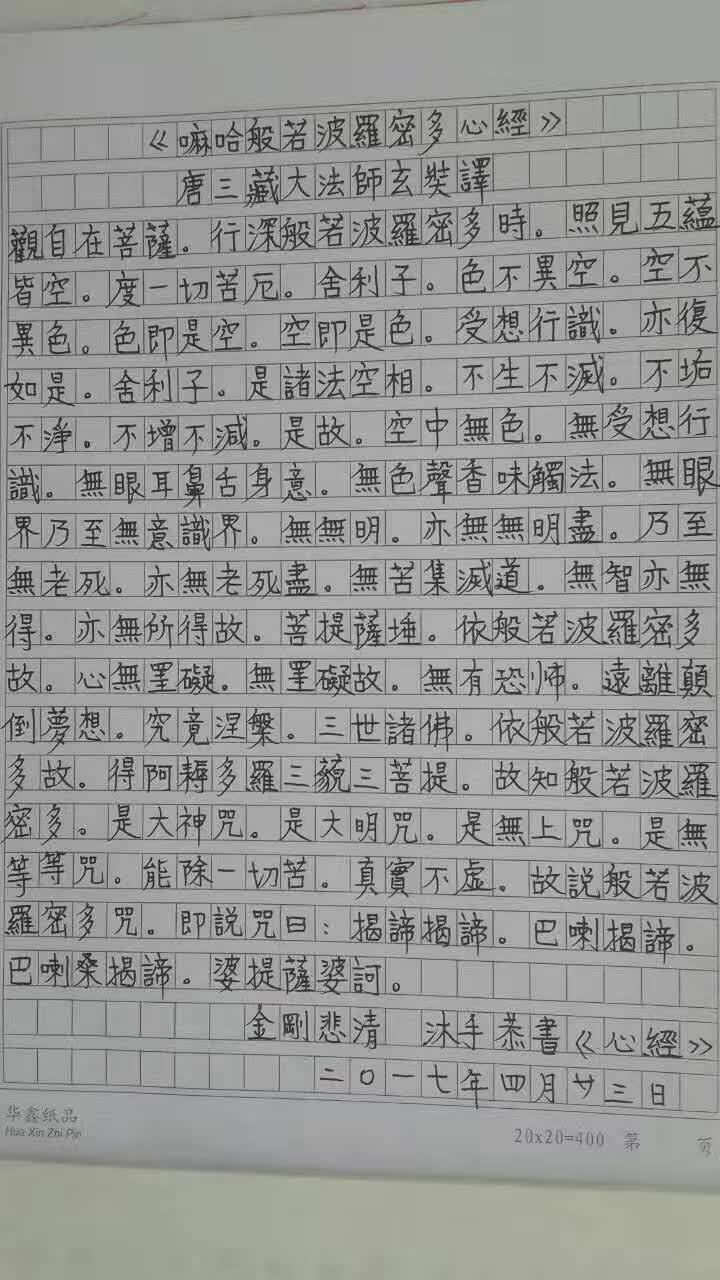 《嘛哈般若波羅密多心經》
唐三藏大法師玄奘譯
觀自在菩薩。行深般若波羅密多時。照見五蘊
皆空。度一切苦厄。舍利子。色不異空。空不
異色。色即是空。空即是色。受想行識。亦復
如是。舍利子。是諸法空相。不生不滅。不垢
不淨。不增不減。是故。空中無色。無受想行
識。無眼耳鼻舌身意。無色聲香味觸法。無眼
界乃至無意識界。無無明。亦無無明盡。乃至
無老死。亦無老死盡。無苦集滅道。無智亦無
得。亦無所得故。菩提薩埵。依般若波羅密多
故。心無罣礙。無罣礙故。無有恐怖。遠離顛
倒夢想。究竟涅槃。三世諸佛。依般若波羅密
多故。得阿耨多羅三藐三菩提。故知般若波羅
密多。是大神咒。是大明咒。是無上咒。是無
等等咒。能除一切苦。真實不虛。故説般若波
羅密多咒。即説咒曰：揭諦揭諦。巴喇揭諦。
巴喇桑揭諦。婆提薩婆訶。
金剛悲清 沐手恭書《心經》
二〇一七年四月廿三日
华鑫纸品
Hua Xin Zhi Pin
20x20=400 第 页